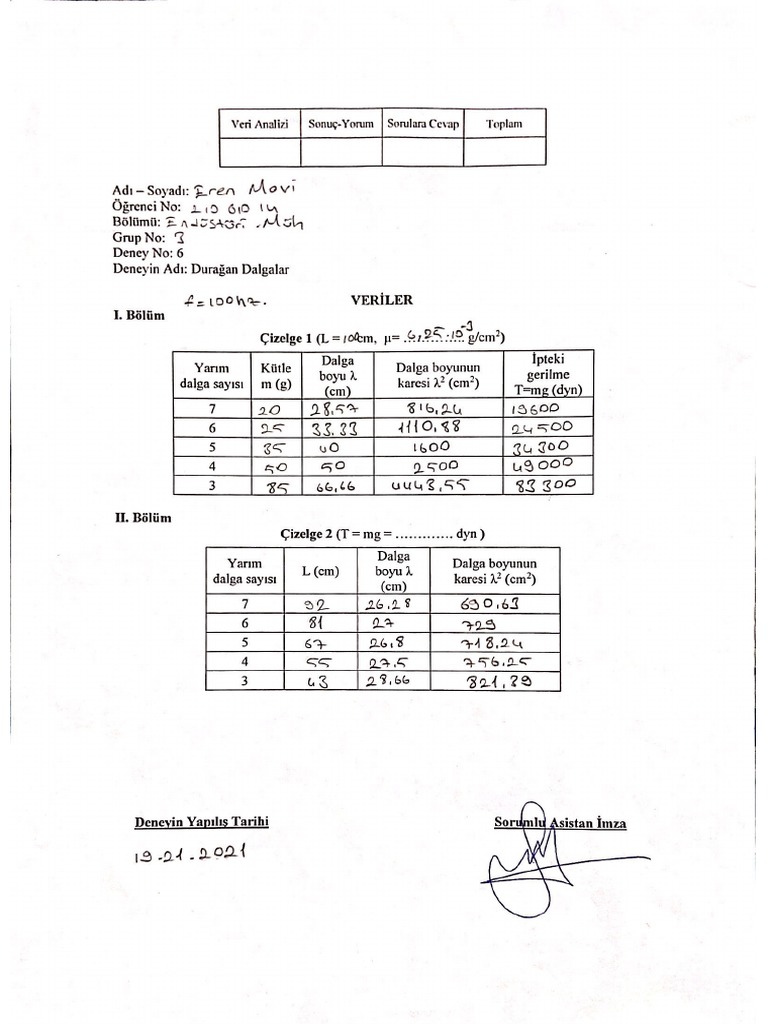 Veri Analizi Sonuç-Yorum Sorulara Cevap Toplam
Adı – Soyadı: Eren Mavi
Öğrenci No: 2106014
Bölümü: Endüstri .Müh
Grup No: 3
Deney No: 6
Deneyin Adı: Durağan Dalgalar
f=100hz.
VERİLER
I. Bölüm
Çizelge 1 (L = 100cm, μ= 6,25.10⁻³ g/cm²)
Yarım dalga sayısı Kütle m (g) Dalga boyu λ (cm) Dalga boyunun karesi λ² (cm²) İpteki gerilme T=mg (dyn)
7 20 28,57 816,24 19600
6 25 33.33 1110,88 24500
5 35 40 1600 34300
4 50 50 2500 49000
3 85 66,66 4443,55 83300
II. Bölüm
Çizelge 2 (T = mg = ............. dyn )
Yarım dalga sayısı L (cm) Dalga boyu λ (cm) Dalga boyunun karesi λ² (cm²)
7 92 26,28 690,63
6 81 27 729
5 67 26,8 718,24
4 55 27,5 756,25
3 43 28,66 821,39
Deneyin Yapılış Tarihi Sorumlu Asistan İmza
19.21.2021